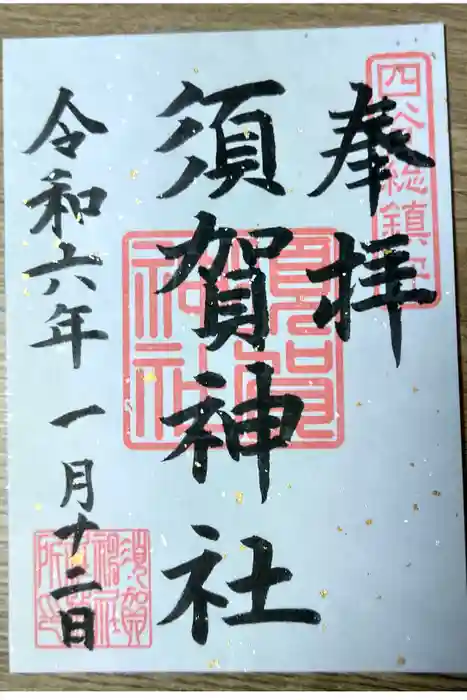 四谷總鎮守
奉拝
須賀神社
須賀神社
令和六年一月十二日
須賀神社